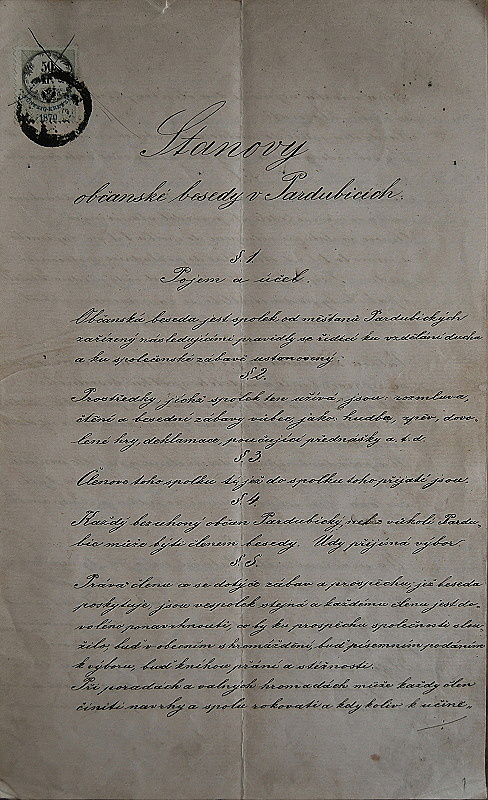 50
KR.
1870
Stanovy
občanské besedy v Pardubicích.
§. 1.
Pojem a účel.
Občanská beseda jest spolek od měšťanů Pardubických
zařízený následujícími pravidly se řídící ku vzdělání ducha
a ku společenské zábavě ustanovený.
§. 2.
Prostředky, jichž spolek ten užívá, jsou: rozmluva,
čtění a besední zábavy vůbec, jako: hudba, zpěv, dovo-
lené hry, deklamace, poučující přednášky a. t. d.
§ 3.
Členové toho spolku ti, již do spolku toho přijatí jsou.
§ 4.
Každý bezúhoný občan Pardubický, nebo z okolí Pardu-
bic může býti členem besedy. Údy přijímá výbor.
§ 5.
Práva členů co se dotýče zábav a prospěchu, jež beseda
poskytuje, jsou vespolek stejná a každému členu jest do-
voleno, ponavrhnouti, co by ku prospěchu společnosti slou-
žilo, buď v obecním shromáždění, buď písemním podáním
k výboru, buď knihou přání a stížností.
Při poradách a valných hromadách může každý člen
činiti návrhy a spolu rokovati a kdykoliv k účině-